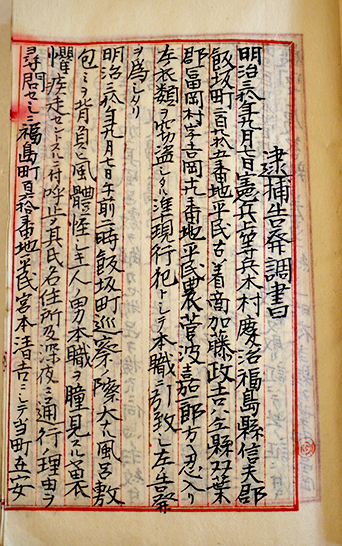 逮捕告発調書
明治三拾年九月七日憲兵上等兵木村慶治福島縣信夫郡
飯坂町百九拾五番地平民古着商加藤政吉公全縣双葉
郡富岡村字吉岡九番地平民農菅波嘉郎方ヘ忍入リ
左衣類ヲ窃盗シタル准現行犯トシテ本職ニ引致シ左告発
ヲ為シタリ
明治三拾年九月七日午前二時飯坂町巡察ノ際大ナル風呂敷
包ミヲ背負ヒ風體怪シキ一人ノ男本職ヲ瞳見スルヤ畏
懼疾走セントスル付呼止其氏名住所及深夜ニ通行ノ理由ヲ
尋問セシニ福島町百拾番地平民宮本清吉ニシテ当町五安